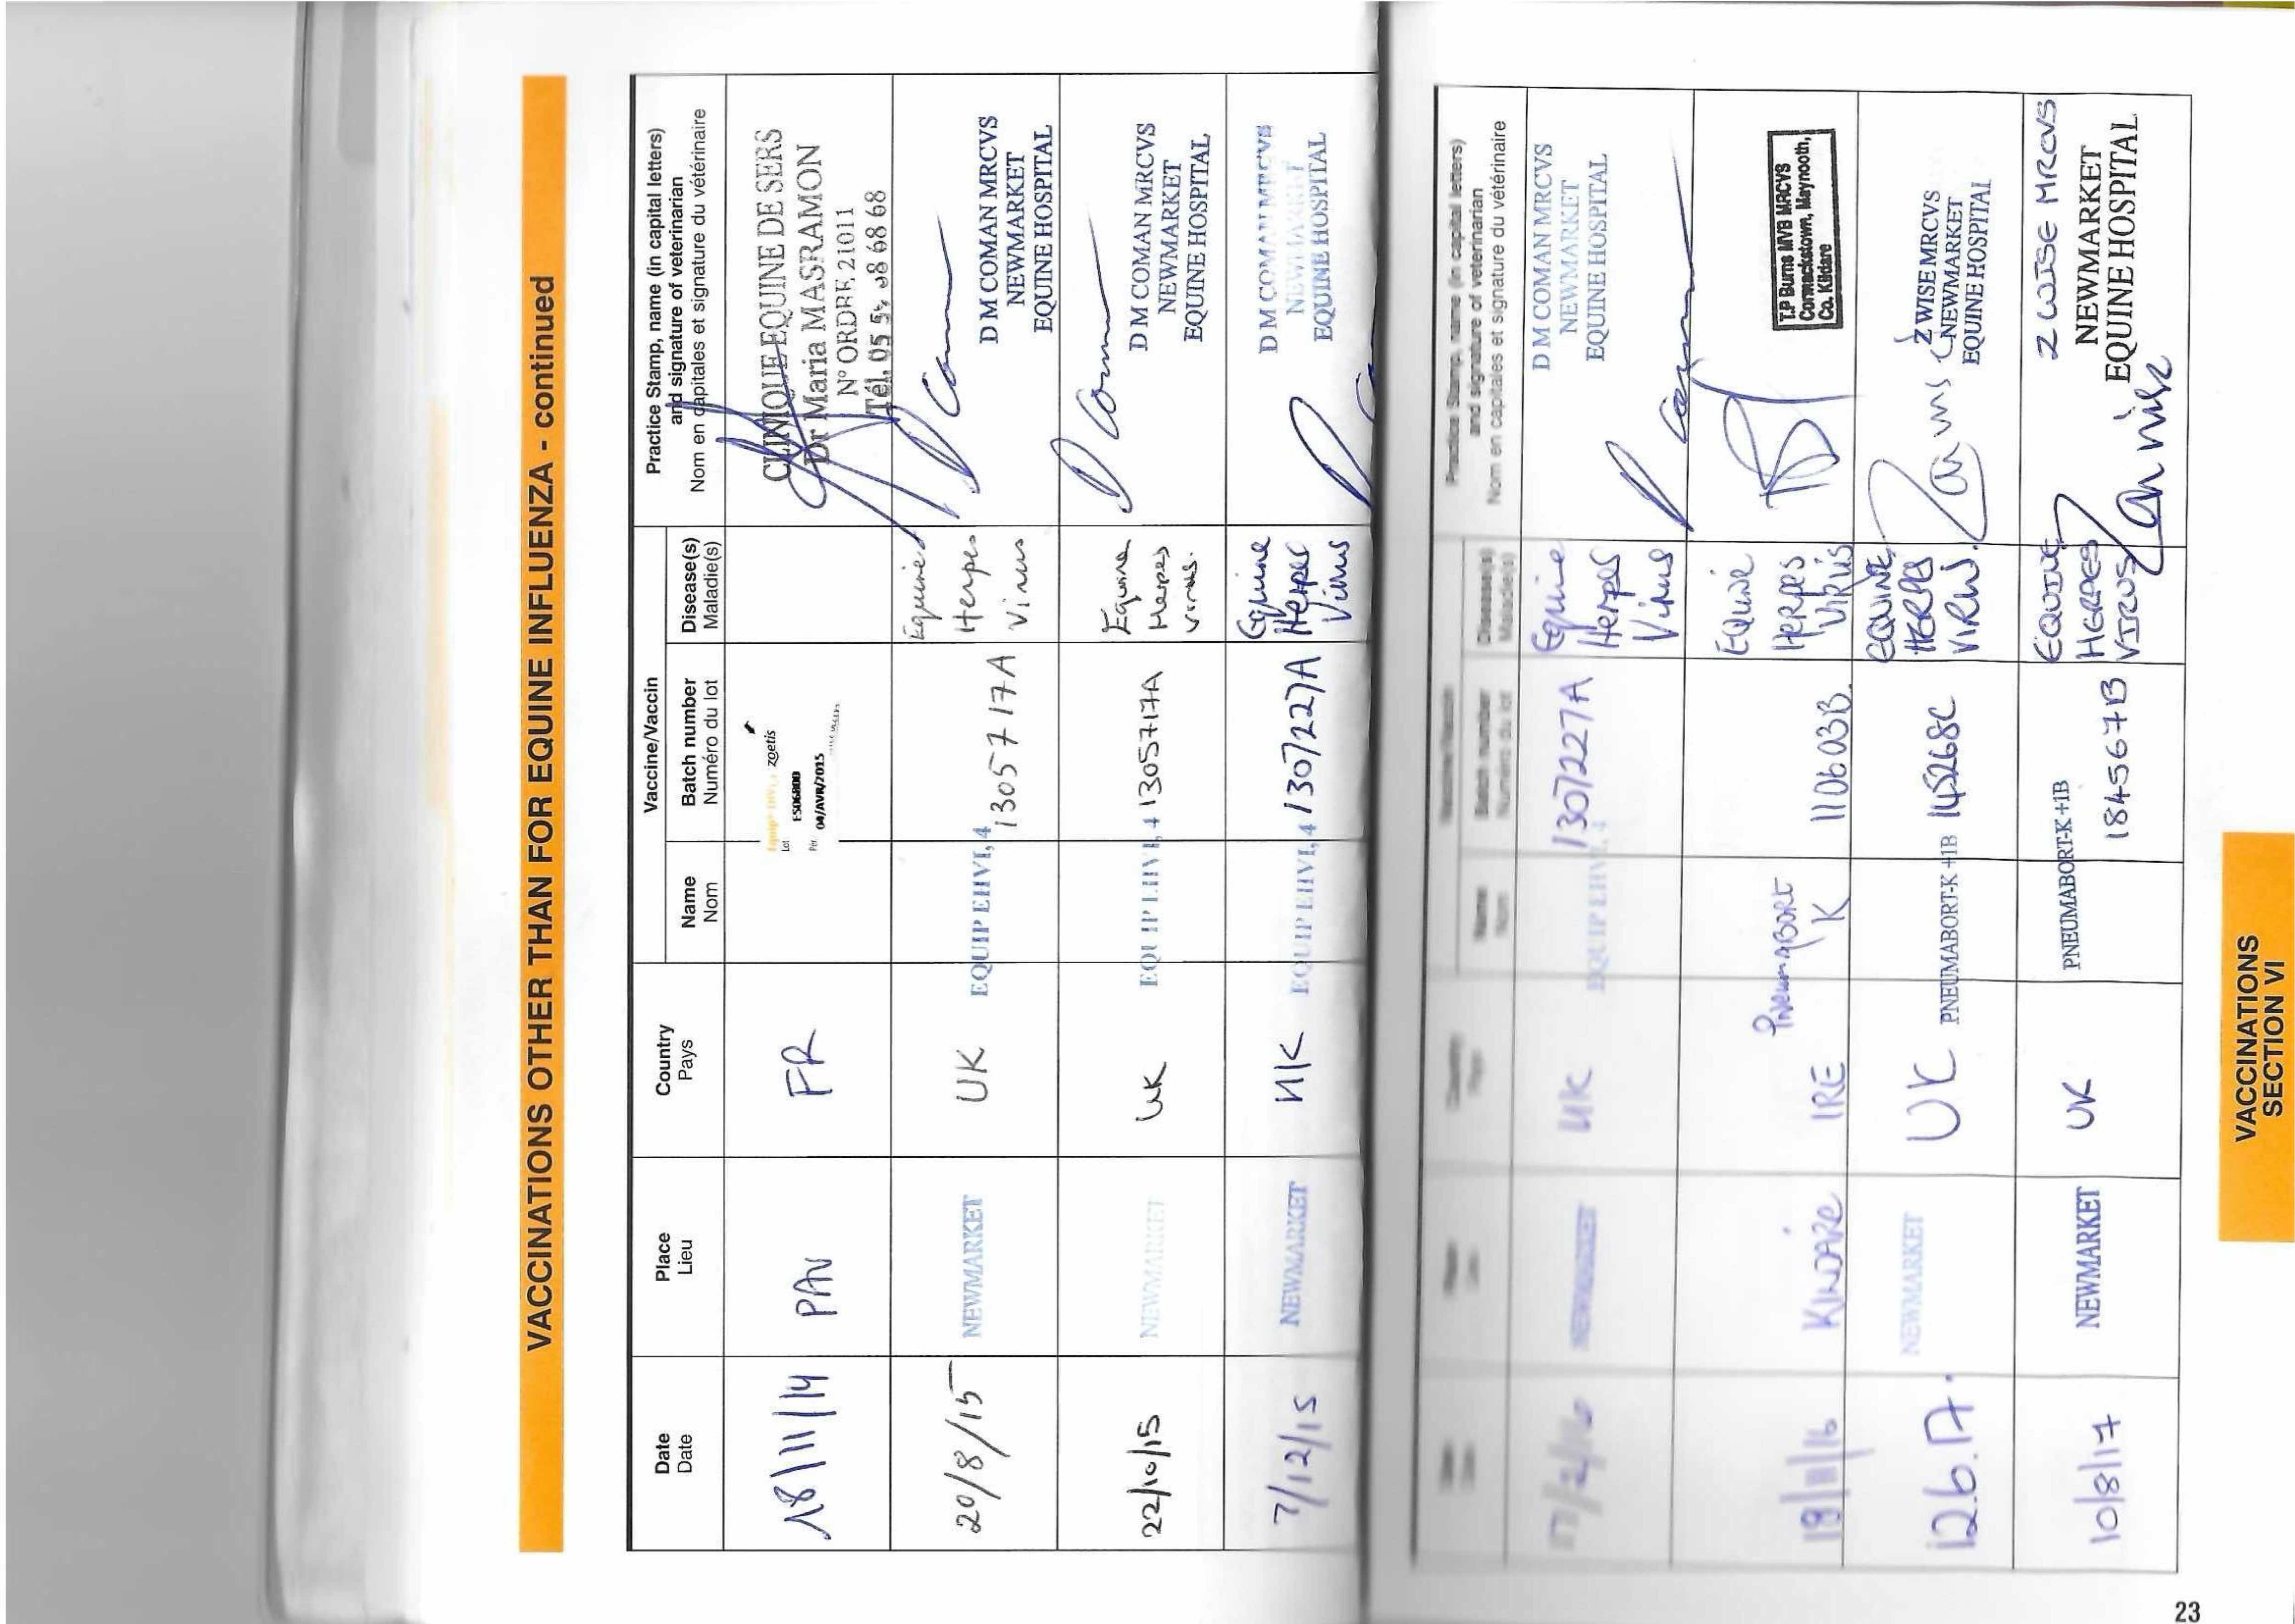 VACCINATIONS OTHER THAN FOR EQUINE INFLUENZA - continued
Date
Date
Place
Lieu
Country
Pays
Vaccine/Vaccin
Name
Nom
Batch number
Numéro du lot
Disease(s)
Maladie(s)
Practice Stamp, name (in capital letters)
and signature of veterinarian
Nom en capitales et signature du vétérinaire
18/11/14
PAU
FR
zoetis
Lot ES06800
Per. 04/AVR/2015
CLINIQUE EQUINE DE SERS
Dr Maria MASRAMON
N° ORDRE 21011
Tél. 05 59 68 68 68
20/8/15
NEWMARKET
UK
EQUIP EHV1,4
1305717A
Equine
Herpes
Virus
D M COMAN MRCVS
NEWMARKET
EQUINE HOSPITAL
22/10/15
NEWMARKET
UK
EQUIP EHV1,4
1305717A
Equine
Herpes
virus.
D M COMAN MRCVS
NEWMARKET
EQUINE HOSPITAL
7/12/15
NEWMARKET
UK
EQUIP EHV1,4
1307227A
Equine
Herpes
Virus
D M COMAN MRCVS
NEWMARKET
EQUINE HOSPITAL
Practice Stamp, name (in capital letters)
and signature of veterinarian
Nom en capitales et signature du vétérinaire
Batch number
Numéro du lot
Disease(s)
Maladie(s)
Name
Nom
17/2/16
NEWMARKET
UK
EQUIP EHV1,4
1307227A
Equine
Herpes
Virus
D M COMAN MRCVS
NEWMARKET
EQUINE HOSPITAL
KILDARE
IRE
Pneumabort
K
110603B.
Equine
Herpes
Virus
T.P Burns MVB MRCVS
Cormackstown, Maynooth,
Co. Kildare
12.6.17.
NEWMARKET
UK
PNEUMABORT-K +1B
145268C
EQUINE
HERPES
VIRUS.
Z WISE MRCVS
NEWMARKET
EQUINE HOSPITAL
10/8/17
NEWMARKET
UK
PNEUMABORT-K+1B
184567B
EQUINE
HERPES
VIRUS
Z WISE MRCVS
NEWMARKET
EQUINE HOSPITAL
VACCINATIONS
SECTION VI
23